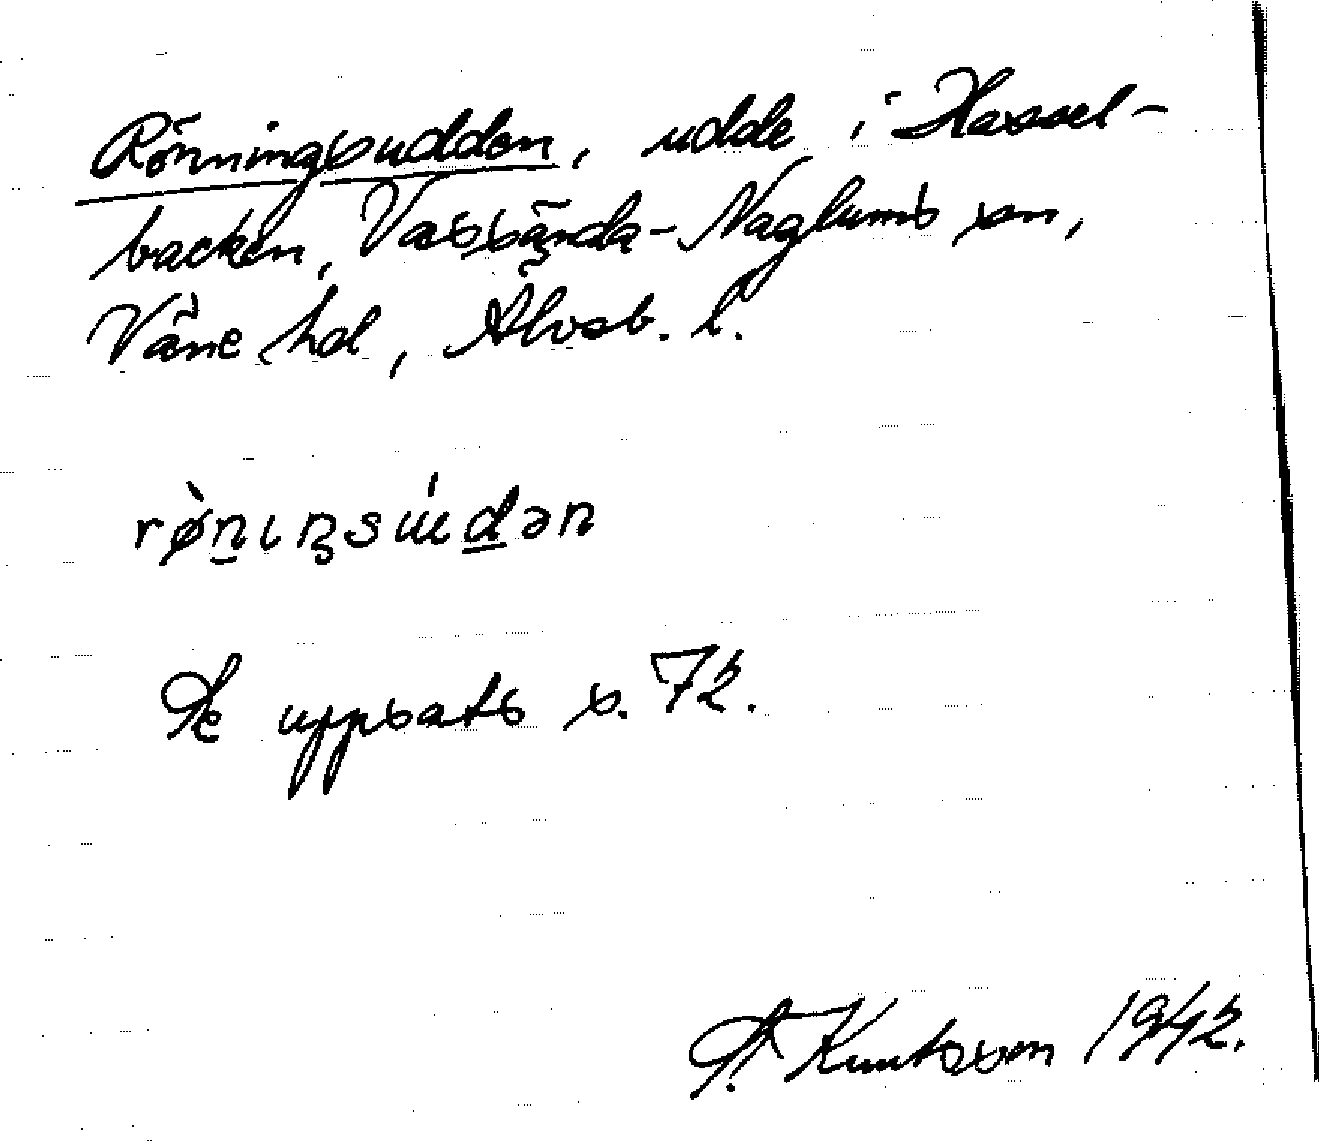 Rönningsudden, udde i Hassel-
backen, Vassända-Naglums sn,
Väne hd, Älvsb. l.
rø̀n̲ıŋsu̍d̲ən
Se uppsats s. 72.
Knutsson 1942.